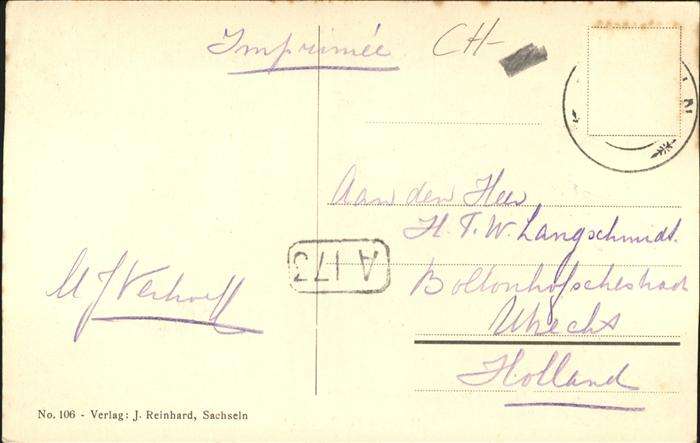 Imprimée
CH-
Aan den Heer
H. T. W. Langschmidt.
Boltonhofschestraat
Utrecht
Holland
A 173
M J Verhoeff
No. 106 - Verlag: J. Reinhard, Sachseln